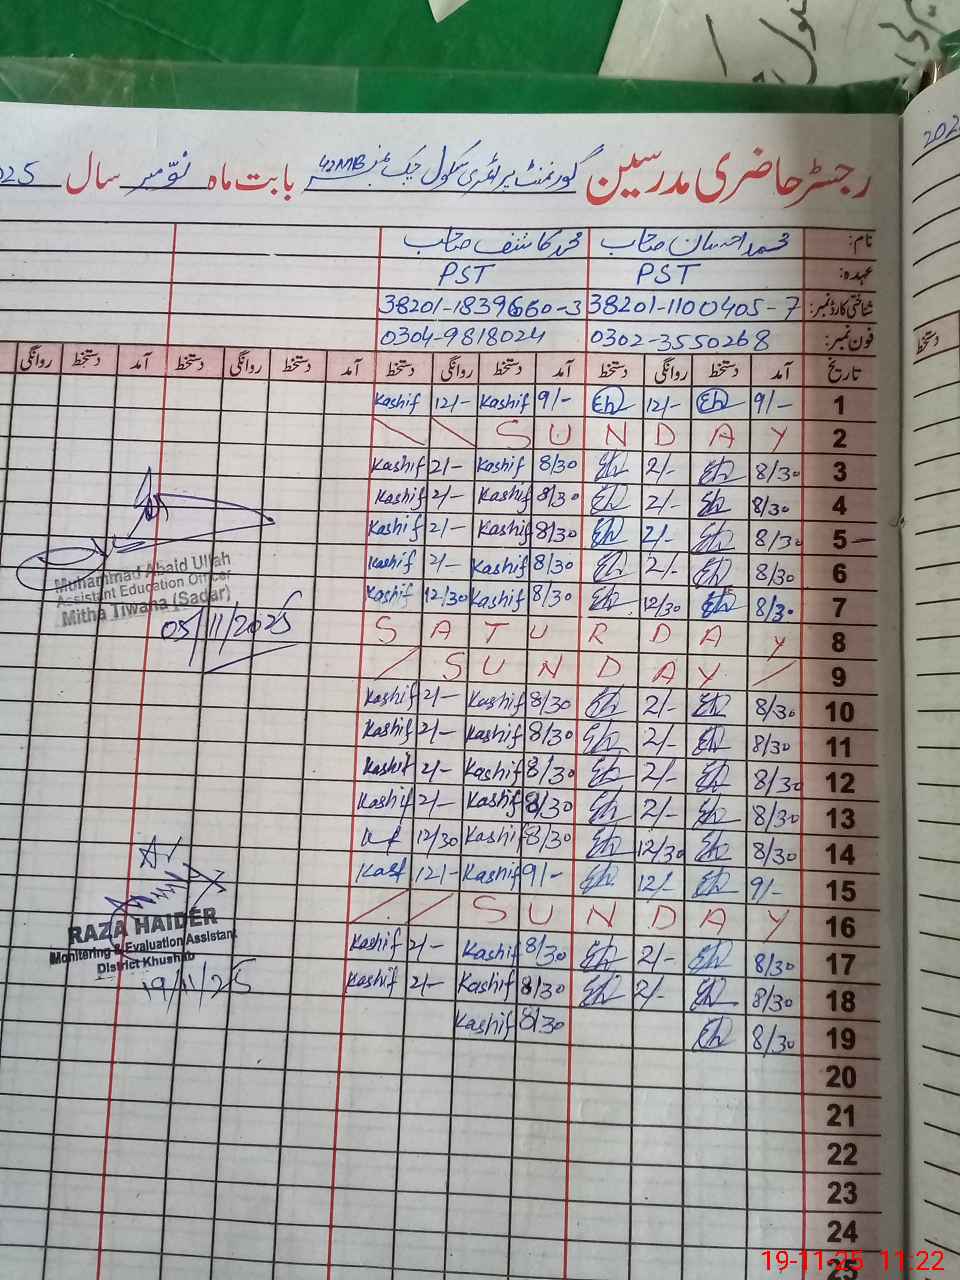 رجسٹر حاضری مدرسین گورنمنٹ پرائمری سکول چک نمبر 42MB بابت ماہ نومبر سال 025
نام: محمد احسان صاحب محمد کاشف صاحب
عہدہ: PST PST
شناختی کارڈ نمبر: 38201-1100405-7 38201-1839660-3
فون نمبر: 0302-3550268 0304-9818024
تاریخ آمد دستخط روانگی دستخط آمد دستخط روانگی دستخط آمد دستخط روانگی دستخط آمد دستخط روانگی
1 9/- Eh 12/- Eh 9/- Kashif 12/- Kashif
2 S U N D A Y
3 8/30 Eh 2/- Eh 8/30 Kashif 2/- Kashif
4 8/30 Eh 2/- Eh 8/30 Kashif 2/- Kashif
5 8/30 Eh 2/- Eh 8/30 Kashif 2/- Kashif
6 8/30 Eh 2/- Eh 8/30 Kashif 2/- Kashif
7 8/30 Eh 12/30 Eh 8/30 Kashif 12/30 Kashif
8 S A T U R D A Y
9 S U N D A Y
10 8/30 Eh 2/- Eh 8/30 Kashif 2/- Kashif
11 8/30 Eh 2/- Eh 8/30 Kashif 2/- Kashif
12 8/30 Eh 2/- Eh 8/30 Kashif 2/- Kashif
13 8/30 Eh 2/- Eh 8/30 Kashif 2/- Kashif
14 8/30 Eh 12/30 Eh 8/30 Kashif 12/30
15 9/- Eh 12/- Eh 9/- Kashif 12/-
16 S U N D A Y
17 8/30 Eh 2/- Eh 8/30 Kashif 2/- Kashif
18 8/30 Eh 2/- Eh 8/30 Kashif 2/- Kashif
19 8/30 Eh 8/30 Kashif
20
21
22
23
24
25
Muhammad Abaid Ullah
Assistant Education Officer
Mitha Tiwana (Sadar)
05/11/2025
RAZA HAIDER
Monitering & Evaluation Assistant
District Khushab
19/11/25
202
دستخط
19-11-25 11:22